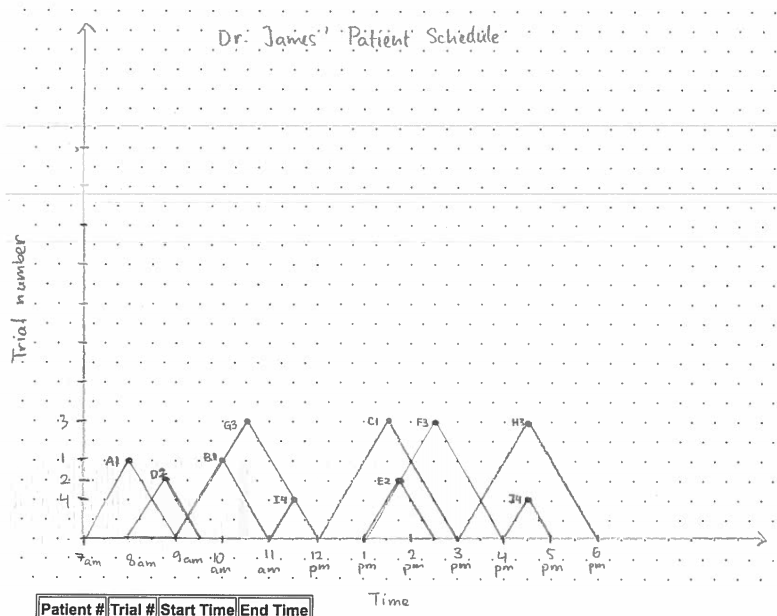 Dr. James' Patient Schedule
Trial number
3
1
2
4
G3
C1
F3
H3
A1
D2
B1
I4
E2
J4
7am
8am
9am
10 am
11 am
12 pm
1 pm
2 pm
3 pm
4 pm
5 pm
6 pm
Time
Patient # Trial # Start Time End Time